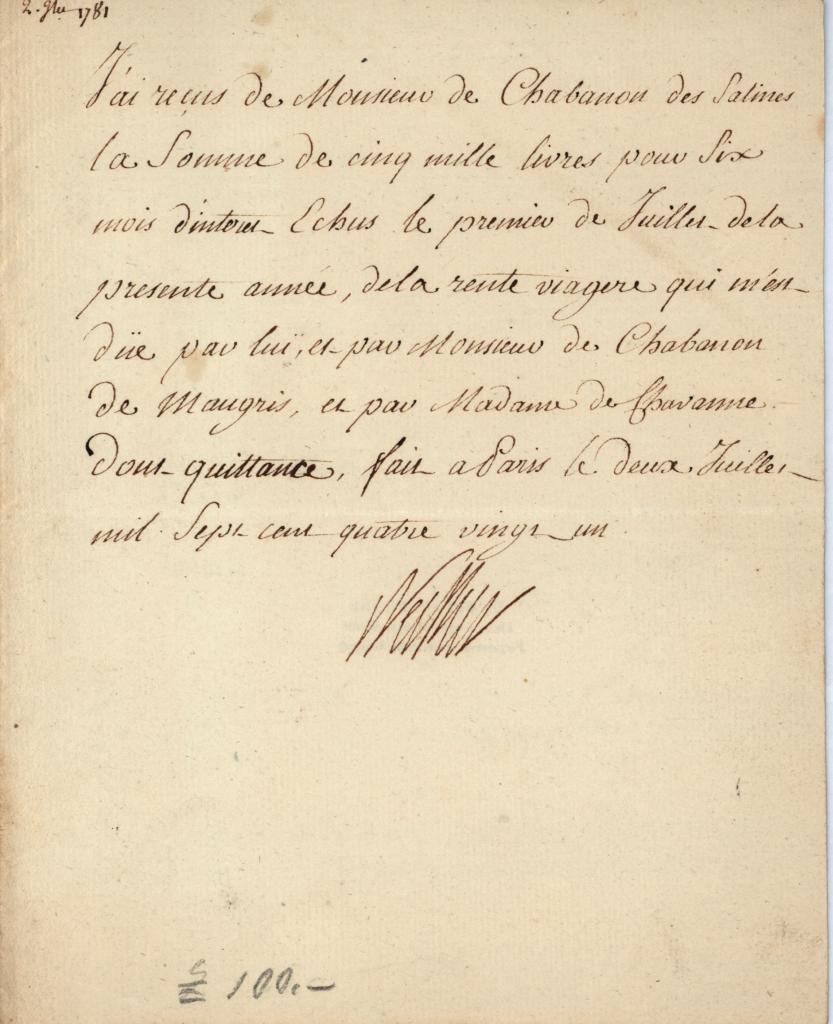 2. 1781
J'ai reçus de Monsieur de Chabanon des Salines
la Somme de cinq mille livres pour Six
mois d'interet Echus le premier de Juillet dela
presente année, dela rente viagere qui m'est
düe par lui, et par Monsieur de Chabanon
de Maugris, et par Madame de Chavanne
dont quittance, fait a Paris le deux Juillet
mil Sept cent quatre vingt un
100.-